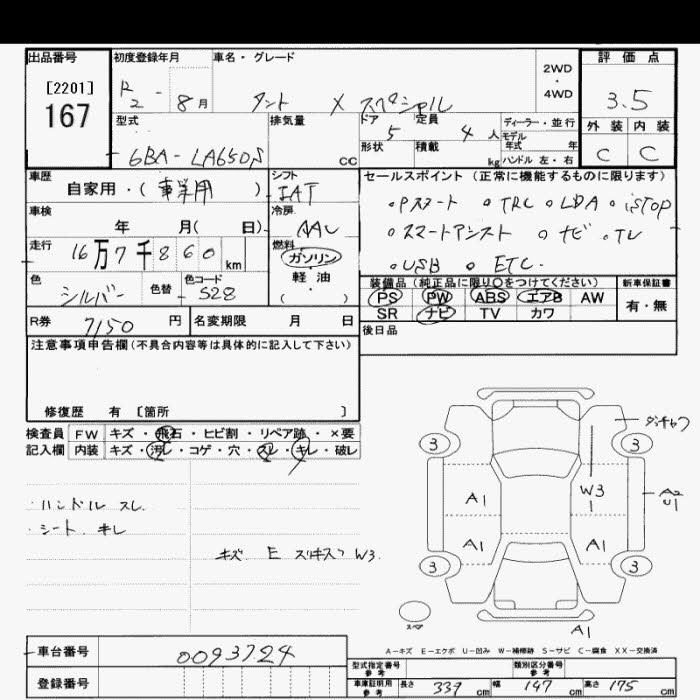 出品番号 初度登録年月 車名・グレード 評価点
[2201]
167
R2-8月 タント X スペシャル 2WD・4WD 3.5
型式 排気量 ドア 定員 ディーラー・並行 外装 内装
6BA-LA650S cc 5 4人 モデル年式 年 C C
形状 積載 kg ハンドル 左・右
車歴 シフト セールスポイント (正常に機能するものに限ります)
自家用・(事業用) IAT
車検 冷房 ・Pスタート ・TRC ・LDA ・iSTOP
年 月( 日) AAC ・スマートアシスト ・ナビ・TV
走行 燃料 ・USB ・ETC.
16万7千860km ガソリン
軽油
( )
色 色替 色コード 装備品 (純正品に限り○をつけてください) 新車保証書
シルバー S28 PS PW ABS エアB AW 有・無
SR ナビ TV カワ
R券 7150円 名変期限 月 日 後日品
注意事項申告欄(不具合内容等は具体的に記入して下さい)
修復歴 有 [箇所 ]
検査員 FW キズ・飛石・ヒビ割・リペア跡・×要
記入欄 内装 キズ・汚レ・コゲ・穴・スレ・キレ・破レ
・ハンドル スレ
・シート キレ
キズ E W3.
3 3
W3
A1
A2
U1
A1 A1
3 3
スペア
A1
A-キズ E-エクボ U-凹み W-補修跡 S-サビ C-腐食 XX-交換済
車台番号 0093724 型式指定番号 参考 類別区分番号 参考
登録番号 車庫証明用 参考 長さ 339cm 幅 147cm 高さ 175cm